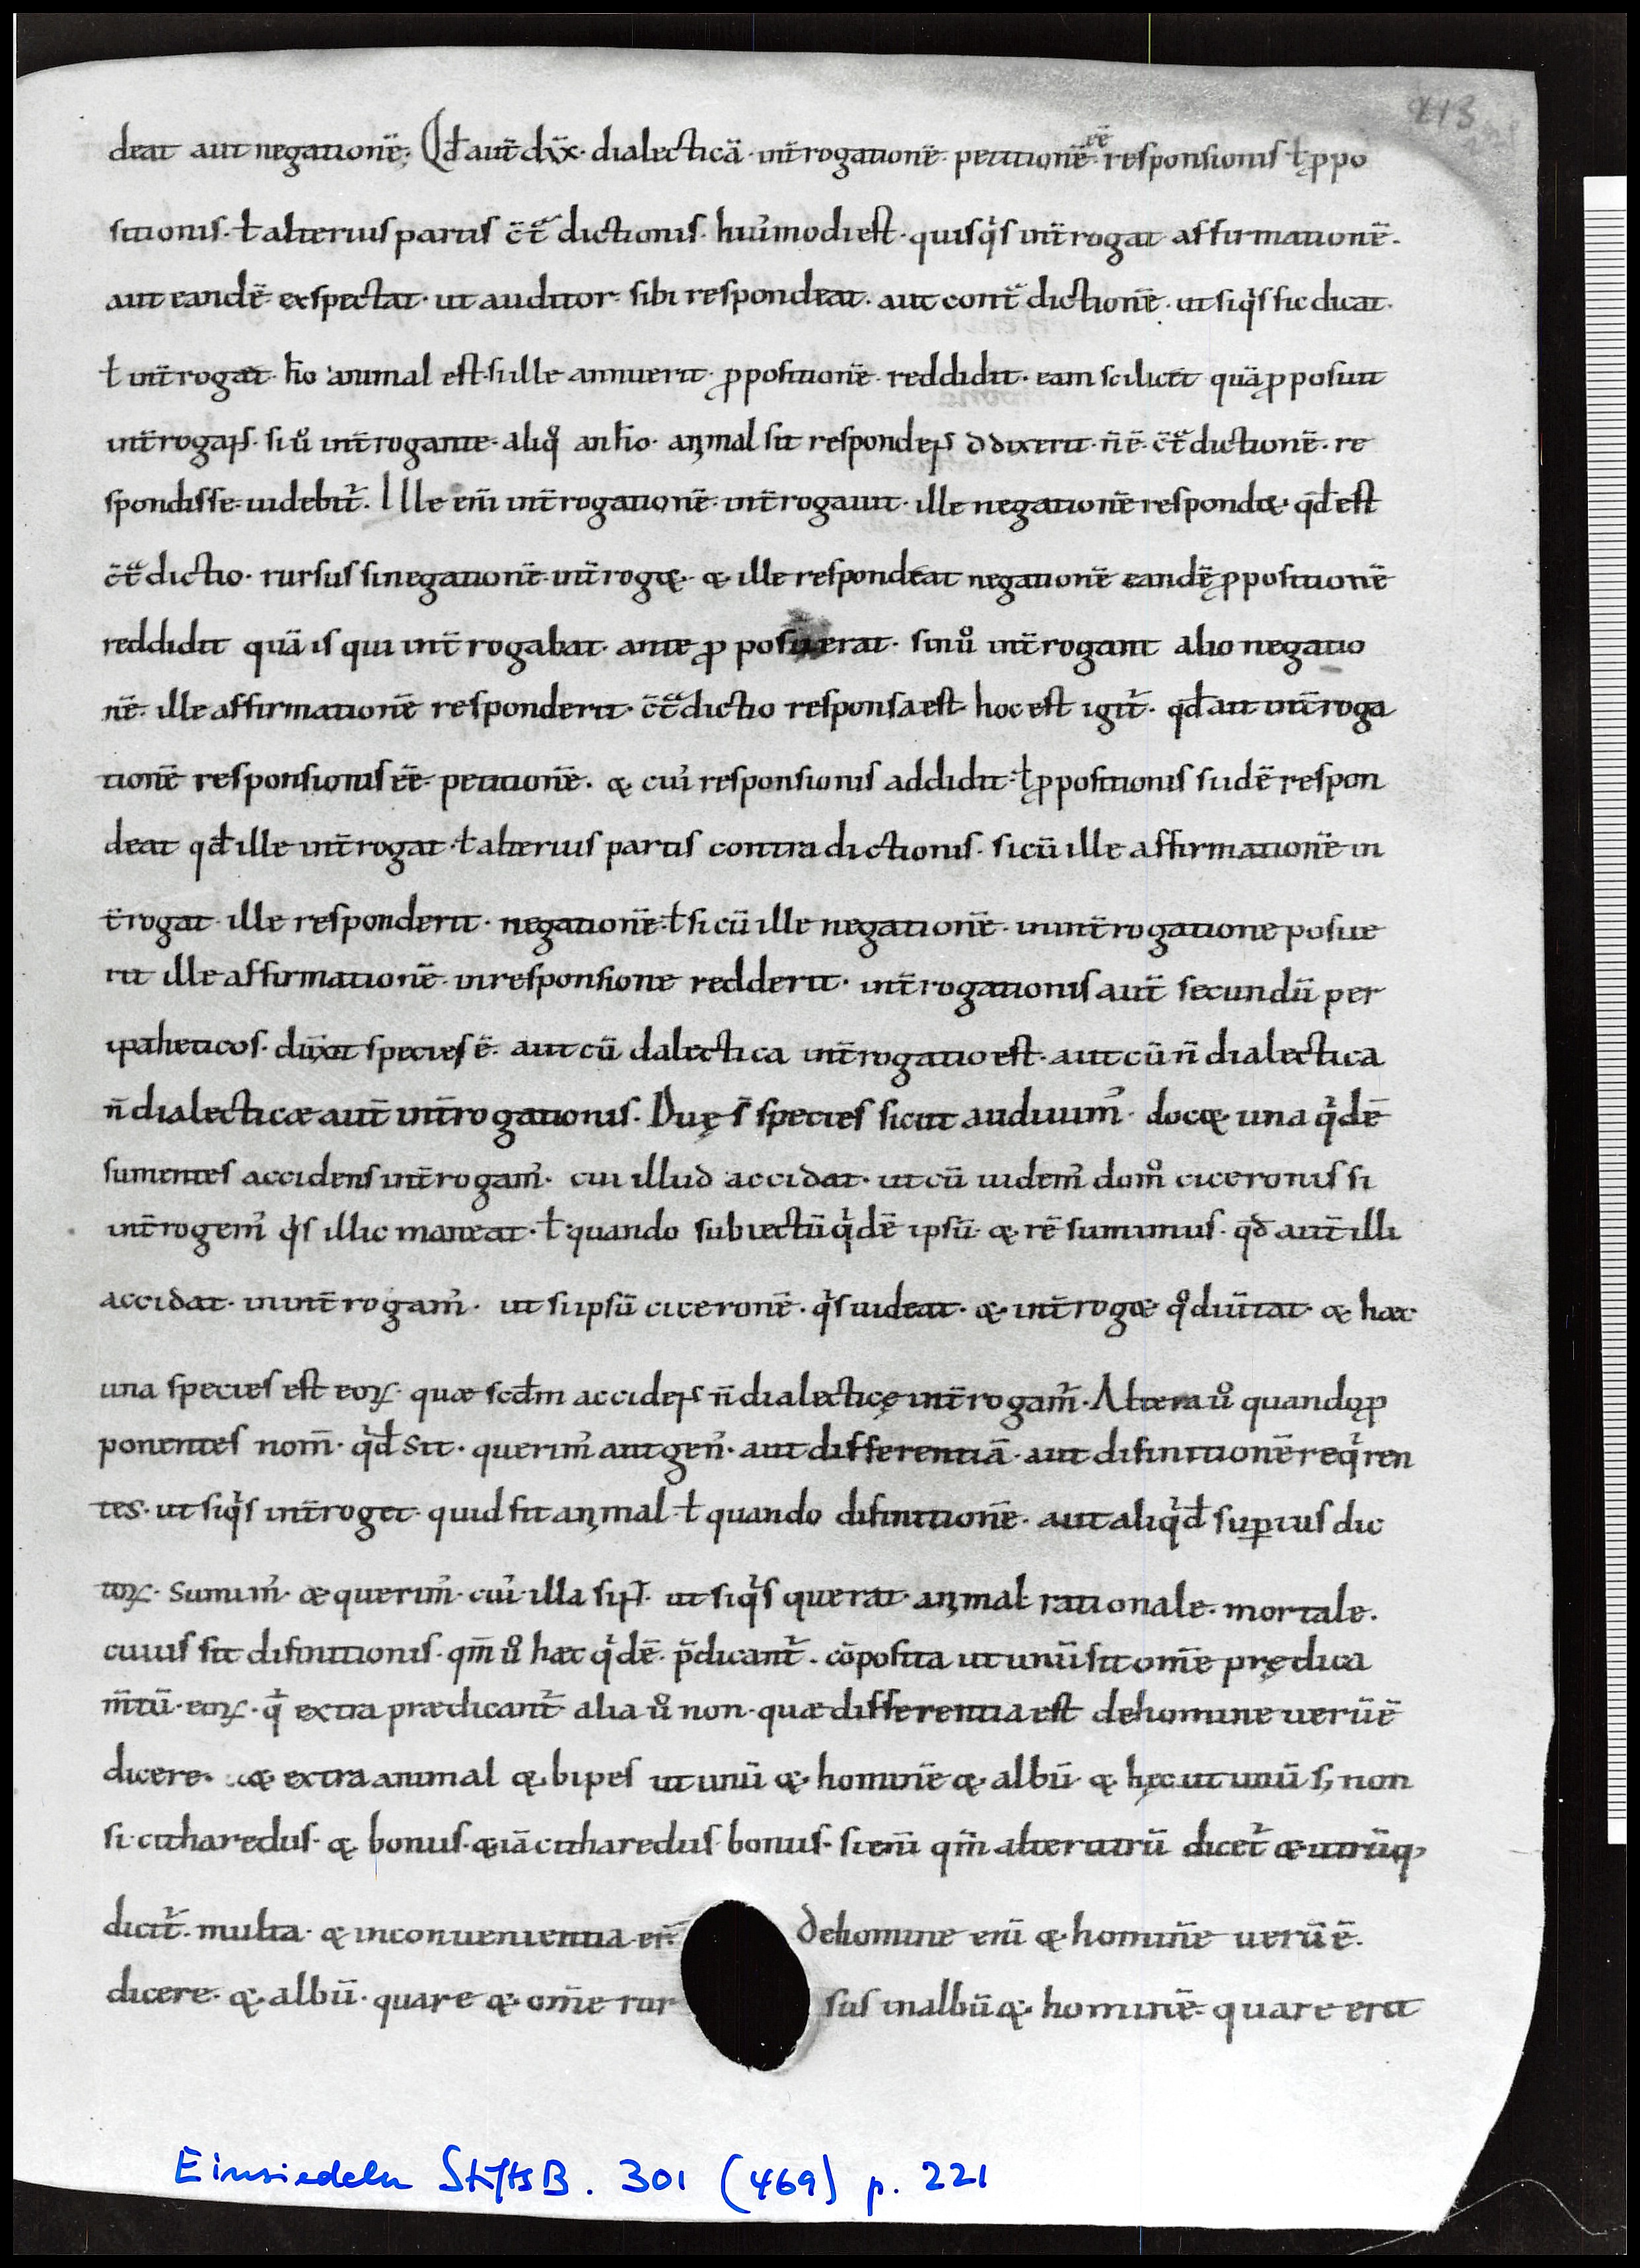 213
deat aut negationē; Qđ aut̄ dix̄ · dialecticā · int̄rogationē · petitionē · ēē responsionis ƚ ꝓpo
sitionis · ƚ alterius partis c̄t̄ᵃdictionis · huiꝰmodi est · quisqͥs int̄rogat affirmationē ·
aut eandē exspectat · ut auditor sibi respondeat · aut cont̄ᵃdictionē · ut siqͥs sic dicat ·
ƚ int̄rogat · ho̅ animal est · si ille annuerit · ꝓpositionē · reddidit · eam scilicet quā ꝓposuit
int̄rogans · si ůͦ int̄rogante · aliqͦ an ho̅ · animal sit respondens ƌ dixerit · n̄ ē · c̄t̄ᵃdictionē · re
spondisse · uidebit̄ᷣ · Ille eni̅ int̄rogationē · int̄rogauit · ille negationē respond& · qđ est
c̄t̄ᵃdictio · rursus si negationē · int̄rog& · & ille respondeat negationē eandē ꝓpositionē
reddidit quā is qui int̄rogabat · ante ꝓposuerat · sin uͦ int̄rogant alio negatio
nē · ille affirmationē responderit · c̄t̄ᵃdictio responsa est · hoc est igit̄ᷣ · qđ ait int̄roga
tionē responsionis ēē · petitionē · & cui responsionis addidit · ƚ ꝓpositionis si idē respon
deat qđ ille int̄rogat · ƚ alterius partis contradictionis · si cū ille affirmationē in
t̄rogat · ille responderit · negationē · ƚ si cū ille negationē · in int̄rogatione posue
rit ille affirmationē · in responsione redderit · int̄rogationis aut̄ secundū per
ipatheticos · dux̄it species ē · aut cū dalectica int̄rogatio est · aut cū n̄ dialectica
n̄ dialecticæ aut̄ int̄rogationis · Duę s̄ species sicut audiuimꝰ · doc& · una qͥdē
sumentes accidens int̄rogamꝰ · cui illud accidat · ut cū uidemꝰ domͦ ciceronis si
int̄rogemꝰ qͥs illic maneat · ƚ · quando subiectū qͥdē ipsū · & rē sumimus · qđ aut̄ illi
accidat · in int̄rogamꝰ · ut si ipsū ciceronē · qͥs uideat · & int̄rog& qͦ diūtat · & hæc
una species est eoꝝ · quæ scđm accidens n̄ dialecticę int̄rogamꝰ · Altera uͦ quando ꝓ
ponentes nom̄ · qͥd sit · querimꝰ aut genꝰ · aut differentiā · aut difinitionē reqͥren
tes · ut siqͥs int̄roget · quid sit animal · ƚ quando difinitionē · aut aliqͥd suꝑius dic
toꝝ · sumimꝰ · & querimꝰ · cuiꝰ illa sint · ut siqͥs querat · animal rationale · mortale ·
cuius sit difinitionis · qm̄ uͦ hæc qͥdē · p̄dicant̄ᷣ · cōposita ut unū sit om̄e prędica
m̄tū · eoꝝ · qͥ extra prædicant̄ᷣ alia uͦ non · quæ differentia est de homine uerū ē
dicere · & extra animal & bipes ut unū & · hominē & · albū · & hęc ut unū s; non
si · citharedus · & bonus · & iā citharedus bonus · si eni̅ qm̄ alterutrū dicet̄ᷣ & utrūq;
dicit̄ᷣ · multa · & inconuenientia er̄t · De homine eni̅ & · hominē uerū ē ·
dicere · & · albū · quare & · om̄e rursus in albū & · hominē · quare erit
Einsiedeln StiftsB. 301 (469) p. 221